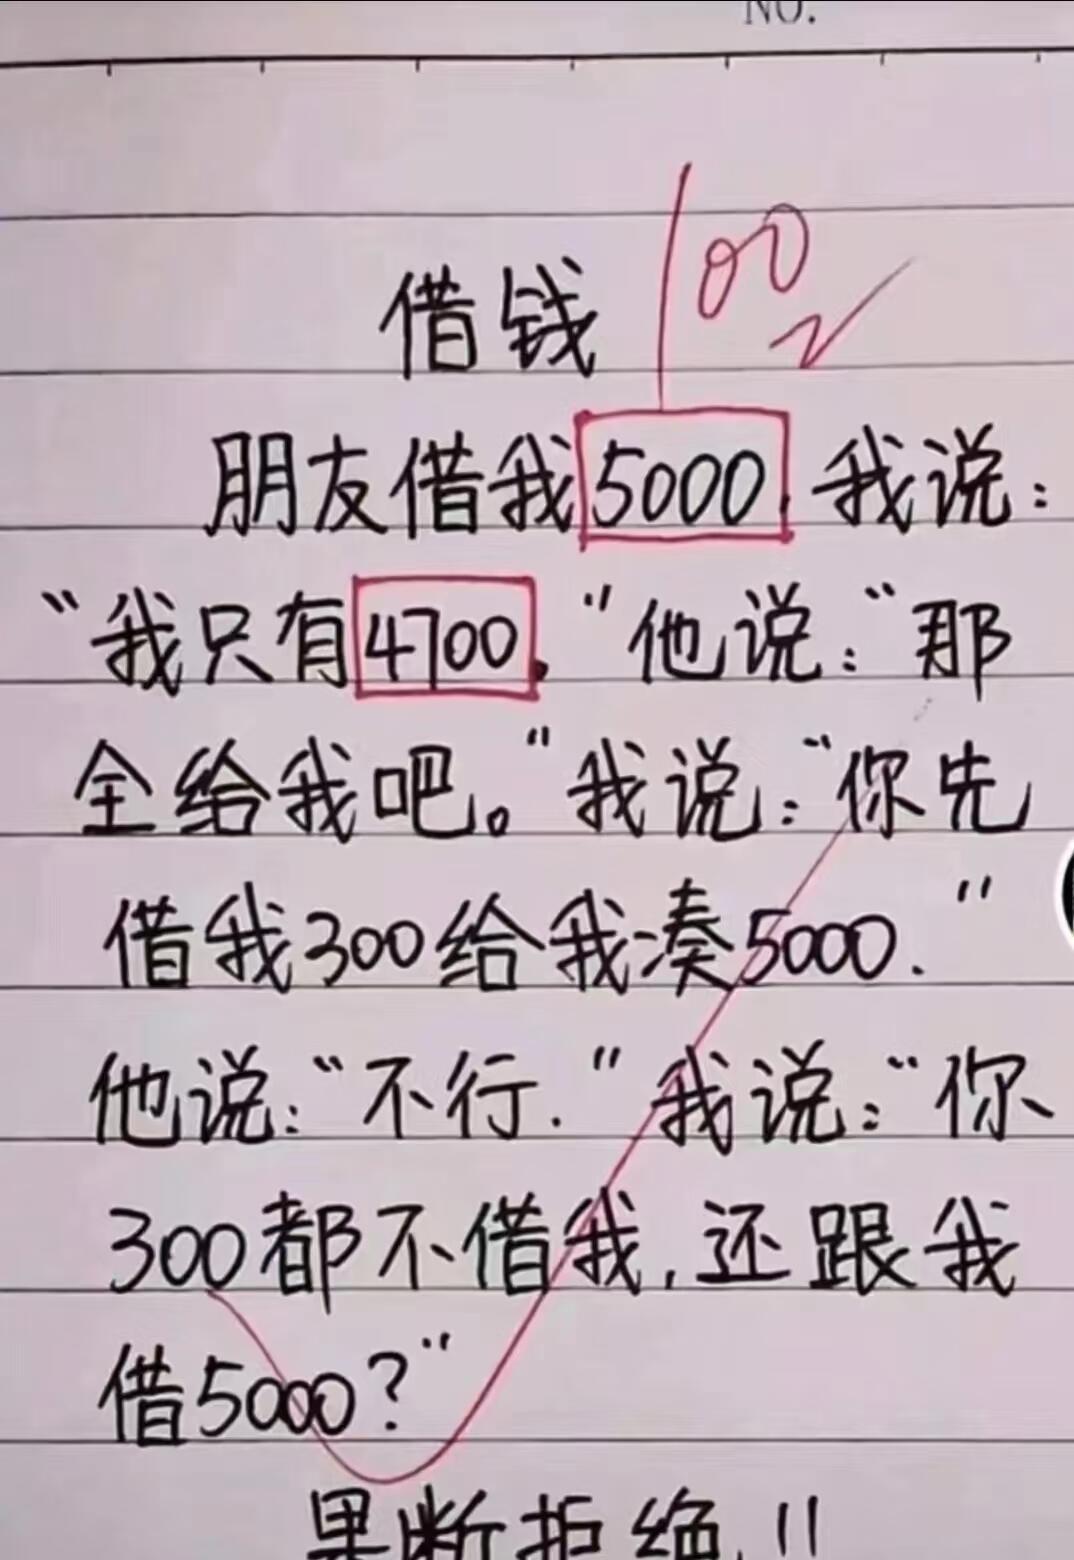 NO.
100
借钱
朋友借我5000，我说：
“我只有4700。”他说：“那
全给我吧。”我说：“你先
借我300给我凑5000.”
他说：“不行.”我说：“你
300都不借我，还跟我
借5000？”
果断拒绝！！